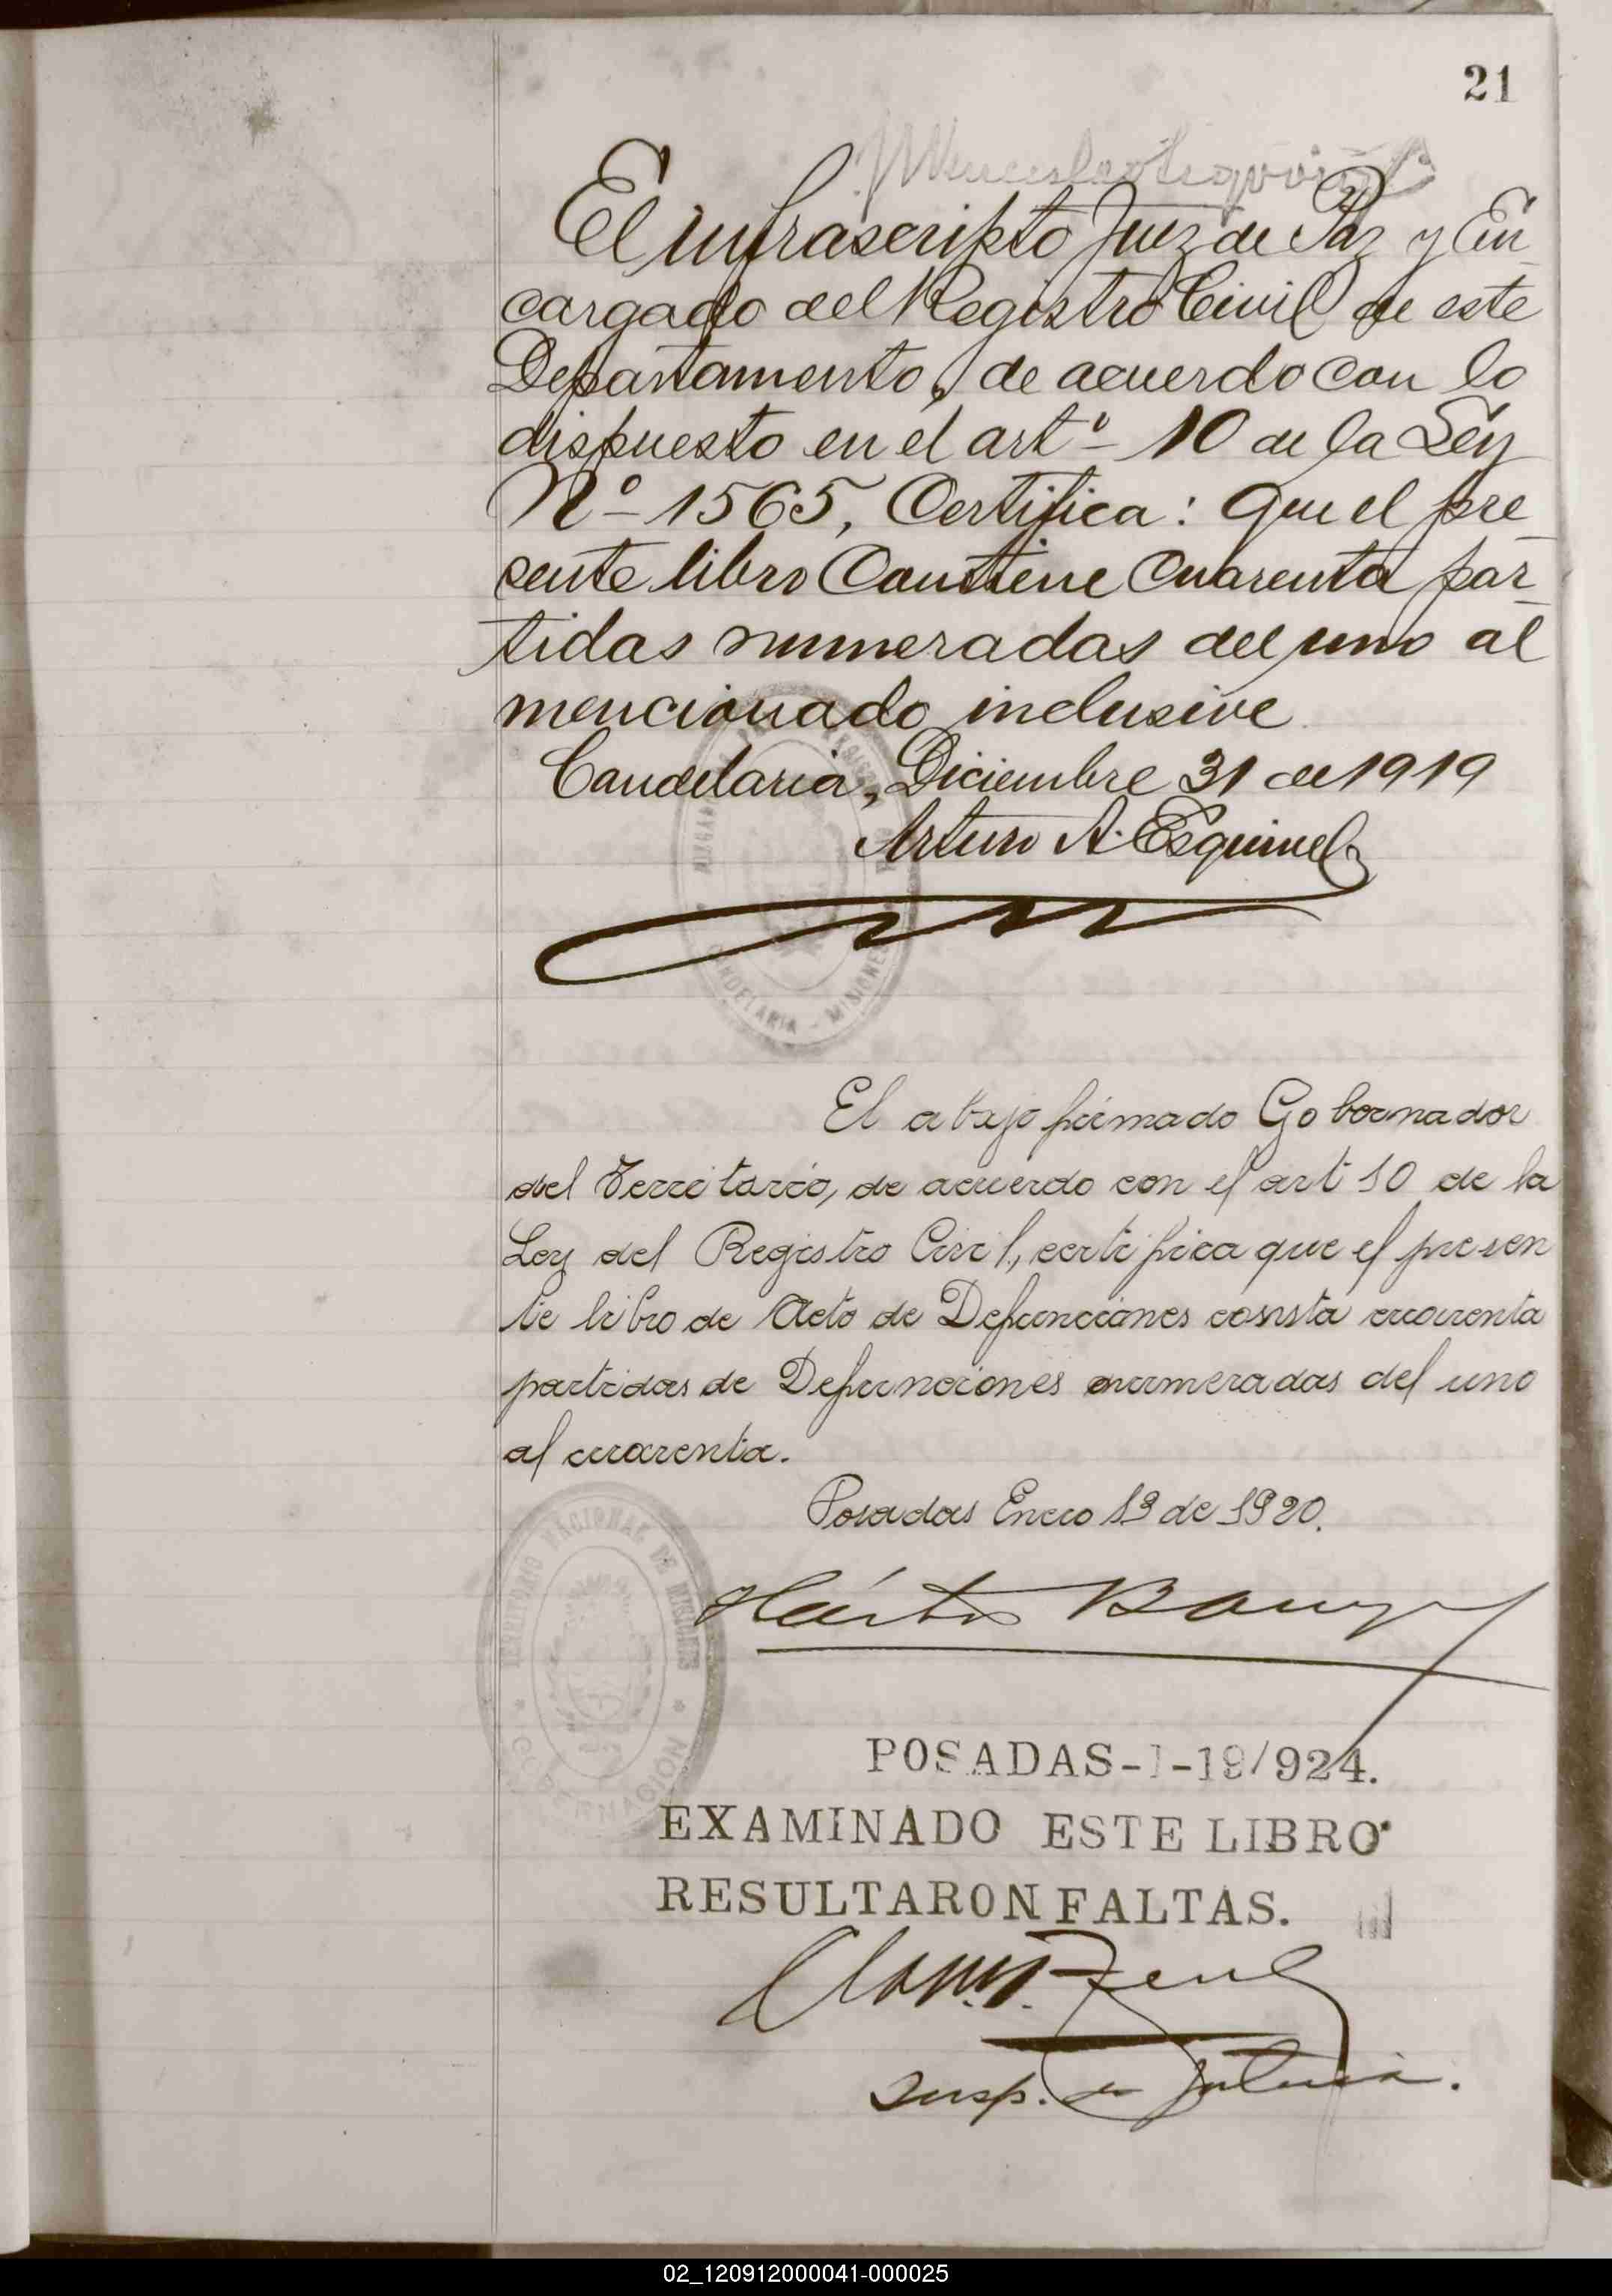 21
El infrascripto Juez de Paz y En-
cargado del Registro Civil de este
Departamento, de acuerdo con lo
dispuesto en el artº 10 de la Ley
Nº 1565, Certifica: Que el pre-
sente libro Contiene Cuarenta par-
tidas numeradas del uno al
mencionado inclusive
Candelaria, Diciembre 31 de 1919
Arturo A. Esquivel
CANDELARIA - MISIONES
El abajo firmado Gobernador
del Territorio, de acuerdo con el art 10 de la
Ley del Registro Civil, certifica que el presen
te libro de Acto de Defunciones consta cuarenta
partidas de Defunciones numeradas del uno
al cuarenta.
Posadas Enero 19 de 1920.
TERRITORIO NACIONAL DE MISIONES
GOBERNACION
POSADAS-1-19/924.
EXAMINADO ESTE LIBRO
RESULTARON FALTAS.
Insp. de
02_120912000041-000025